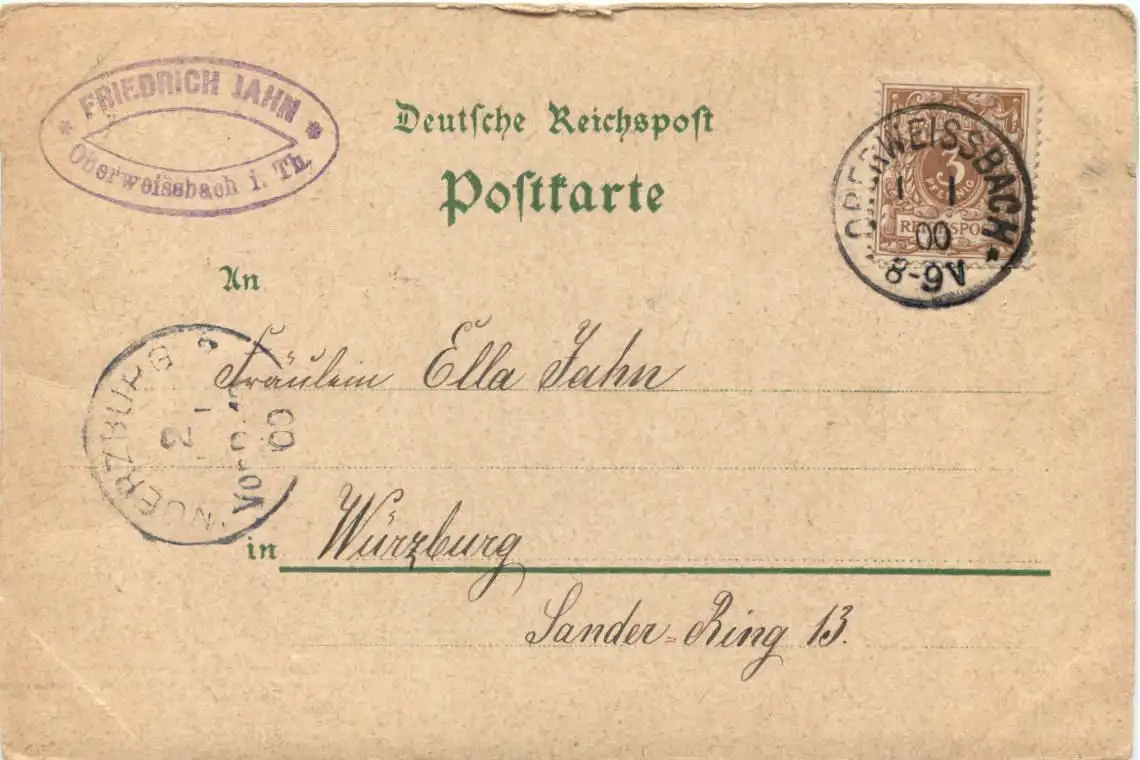 * FRIEDRICH JAHN *
Oberweissbach i. Th.
Deutsche Reichspost
Postkarte
3
PFENNIG
REICHSPOST
OBERWEISSBACH
1 1
00
8-9V
An
Fräulein Ella Jahn
WUERZBURG
2
1
00
Vorm
in Würzburg
Sander-Ring 13.